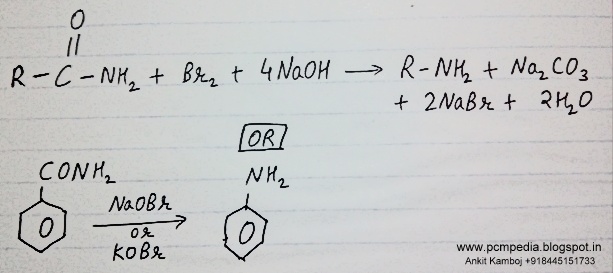 O
||
R - C - NH₂ + Br₂ + 4NaOH → R-NH₂ + Na₂CO₃
+ 2NaBr + 2H₂O
OR
CONH₂ NH₂
NaOBr
or
KOBr
www.pcmpedia.blogspot.in
Ankit Kamboj +918445151733